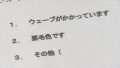 １．　ウェーブがかかっています
２．　黒毛色です
３．　その他（